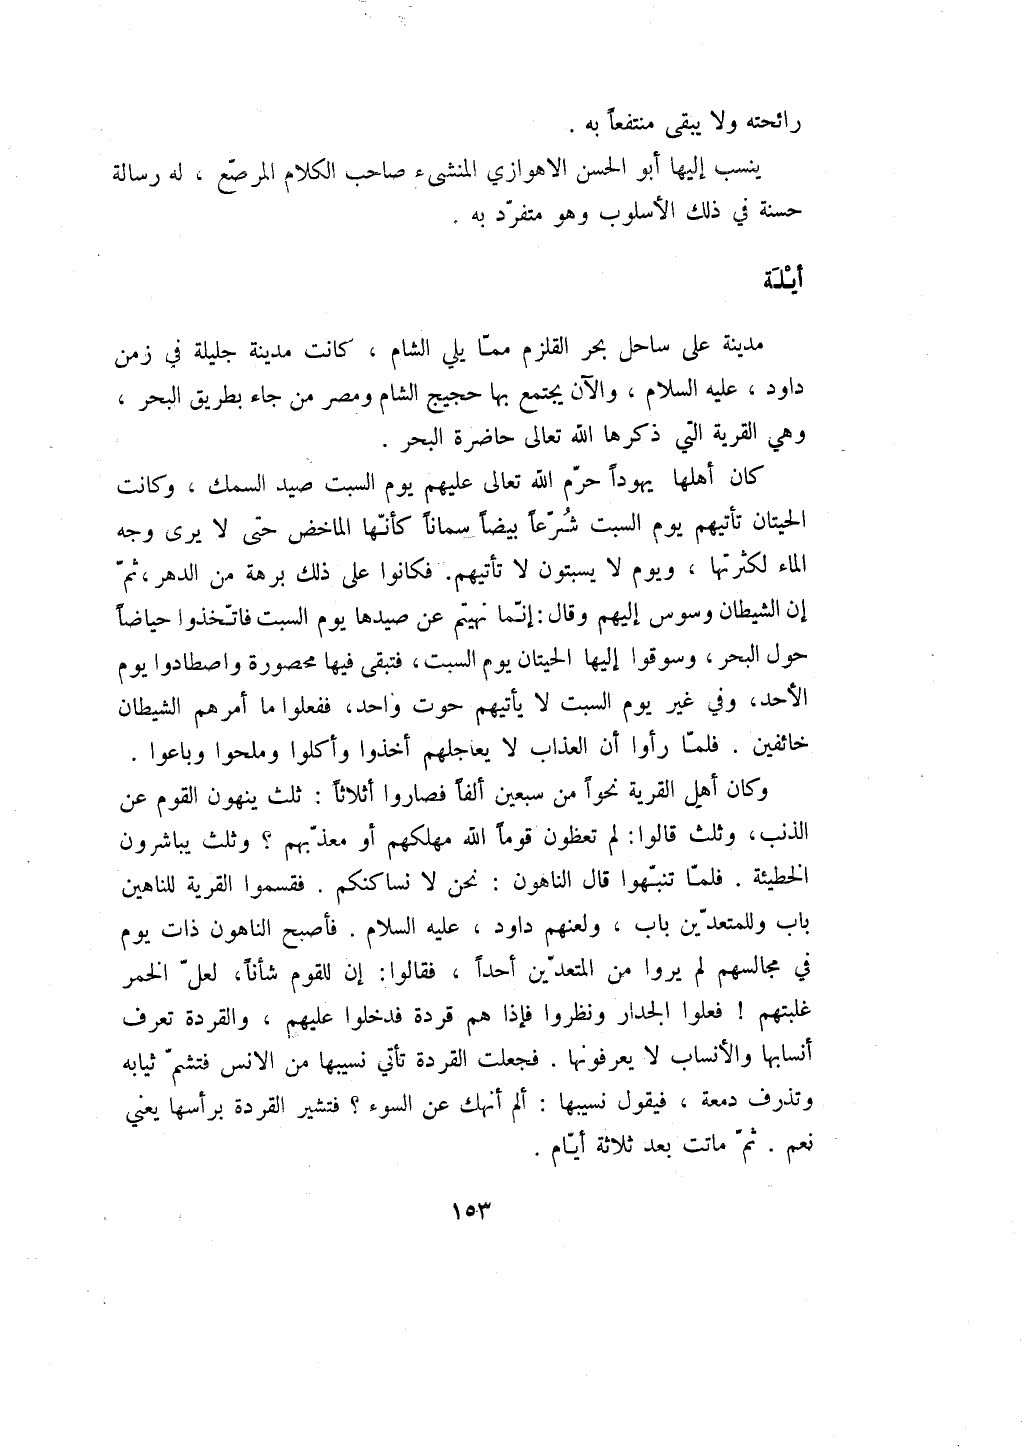 رائحته ولا يبقى منتفعاً به .
ينسب إليها أبو الحسن الاهوازي المنشىء صاحب الكلام المرصّع ، له رسالة
حسنة في ذلك الأسلوب وهو متفرّد به .
أيْلَة
مدينة على ساحل بحر القلزم ممّا يلي الشام ، كانت مدينة جليلة في زمن
داود ، عليه السلام ، والآن يجتمع بها حجيج الشام ومصر من جاء بطريق البحر ،
وهي القرية التي ذكرها الله تعالى حاضرة البحر .
كان أهلها يهوداً حرّم الله تعالى عليهم يوم السبت صيد السمك ، وكانت
الحيتان تأتيهم يوم السبت شُرّعاً بيضاً سماناً كأنّها الماخض حتّى لا يرى وجه
الماء لكثرتها ، ويوم لا يسبتون لا تأتيهم. فكانوا على ذلك برهة من الدهر ،ثمّ
إن الشيطان وسوس إليهم وقال :إنّما نهيتم عن صيدها يوم السبت فاتّخذوا حياضاً
حول البحر ، وسوقوا إليها الحيتان يوم السبت، فتبقى فيها محصورة واصطادوا يوم
الأحد، وفي غير يوم السبت لا يأتيهم حوت واحد، ففعلوا ما أمرهم الشيطان
خائفين . فلمّا رأوا أن العذاب لا يعاجلهم أخذوا وأكلوا وملحوا وباعوا .
وكان أهل القرية نحواً من سبعين ألفاً فصاروا أثلاثاً : ثلث ينهون القوم عن
الذنب، وثلث قالوا: لم تعظون قوماً الله مهلكهم أو معذّبهم ؟ وثلث يباشرون
الخطيئة . فلمّا تنبّهوا قال الناهون : نحن لا نساكنكم . فقسموا القرية للناهين
باب وللمتعدّين باب ، ولعنهم داود ، عليه السلام . فأصبح الناهون ذات يوم
في مجالسهم لم يروا من المتعدّين أحداً ، فقالوا: إن للقوم شأناً، لعلّ الخمر
غلبتهم ! فعلوا الجدار ونظروا فإذا هم قردة فدخلوا عليهم ، والقردة تعرف
أنسابها والأنساب لا يعرفونها . فجعلت القردة تأتي نسيبها من الانس فتشمّ ثيابه
وتذرف دمعة ، فيقول نسيبها : ألم أنهك عن السوء ؟ فتشير القردة برأسها يعني
نعم . ثمّ ماتت بعد ثلاثة أيّام .
١٥٣